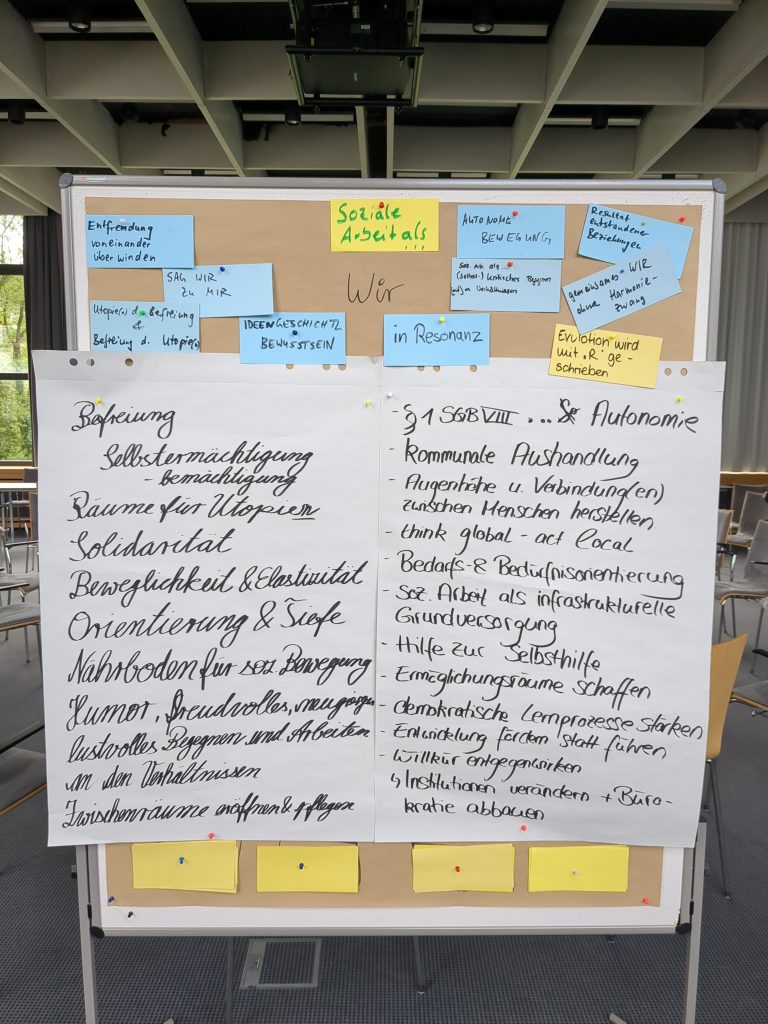 Soziale
Arbeit als ...
Entfremdung
voneinander
überwinden
AUTONOME
BEWEGUNG
Resultat
entstandener
Beziehungen
SAG WIR
ZU MIR
Wir
Soz. Arb. als ...
kritisches
gemeinsames WIR
ohne Harmonie-
zwang
Utopie(n) d. Befreiung
&
Befreiung d. Utopie(n)
IDEENGESCHICHTL
BEWUSSTSEIN
in Resonanz
Evolution wird
mit "R" ge-
schrieben
Befreiung
Selbstermächtigung
- bemächtigung
Räume für Utopien
Solidarität
Beweglichkeit & Elastizität
Orientierung & Tiefe
Nährboden für soz. Bewegung
Humor, freudvolles, neugieriges
lustvolles Begegnen und Arbeiten
in den Verhältnissen
Zwischenräume eröffnen & pflegen
- § 1 SGB VIII ... Autonomie
- kommunale Aushandlung
- Augenhöhe u. Verbindung(en)
zwischen Menschen herstellen
- think global - act local
- Bedarfs- & Bedürfnisorientierung
- Soz. Arbeit als infrastrukturelle
Grundversorgung
- Hilfe zur Selbsthilfe
- Ermöglichungsräume schaffen
- demokratische Lernprozesse stärken
- Entwicklung fördern statt führen
- Willkür entgegenwirken
↳ Institutionen verändern + Büro-
kratie abbauen